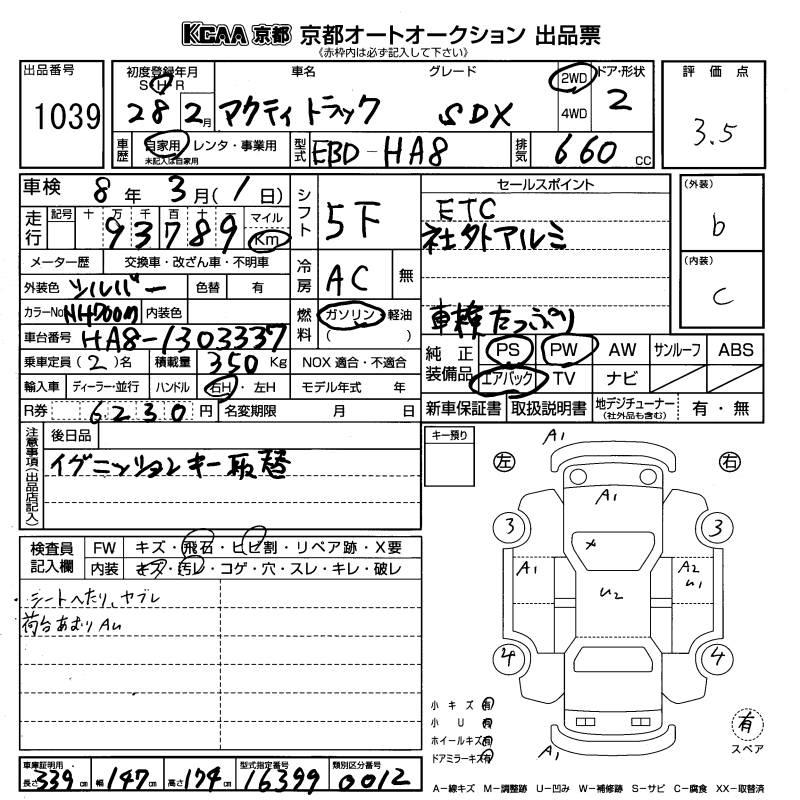 KCAA 京都 京都オートオークション 出品票
《赤枠内は必ず記入して下さい》
出品番号
1039
初度登録年月
S H R
28 2月
車名
アクティ トラック
グレード
SDX
2WD
4WD
ドア・形状
2
評価点
3.5
車歴
自家用 レンタ・事業用
未記入は自家用
型式
EBD-HA8
排気
660 cc
車検 8年 3月(1日)
走行
記号 十 万 千 百 十 一 マイル
93789 Km
メーター歴 交換車・改ざん車・不明車
外装色 シルバー 色替 有
カラーNo. NH700M 内装色
車台番号 HA8-1303337
乗車定員(2)名 積載量 350 Kg
輸入車 ディーラー・並行 ハンドル 右H・左H
R券 6230円 名変期限 月 日
シフト
5F
冷房
AC 無
燃料
ガソリン 軽油
( )
NOX 適合・不適合
モデル年式 年
セールスポイント
ETC
社外アルミ
車検たっぷり
(外装)
b
(内装)
c
純正装備品
PS PW AW サンルーフ ABS
エアバック TV ナビ
新車保証書 取扱説明書 地デジチューナー(社外品も含む) 有・無
注意事項(出品店記入)
後日品
イグニッションキー取替
検査員記入欄
FW キズ・飛石・ヒビ割・リペア跡・X要
内装 キズ・汚レ・コゲ・穴・スレ・キレ・破レ
・シートへたり、ヤブレ
荷台あおりAU
キー預り
左 右
A1
A1
3 3
×
A1
A2
U1
U2
4 4
A1
小キズ 有
小U 有
ホイールキズ 有
ドアミラーキズ 有
有
スペア
車庫証明用
長さ 339cm 幅 147cm 高さ 174cm
型式指定番号
16399
類別区分番号
0012
A−線キズ M−調整跡 U−凹み W−補修跡 S−サビ C−腐食 XX−取替済